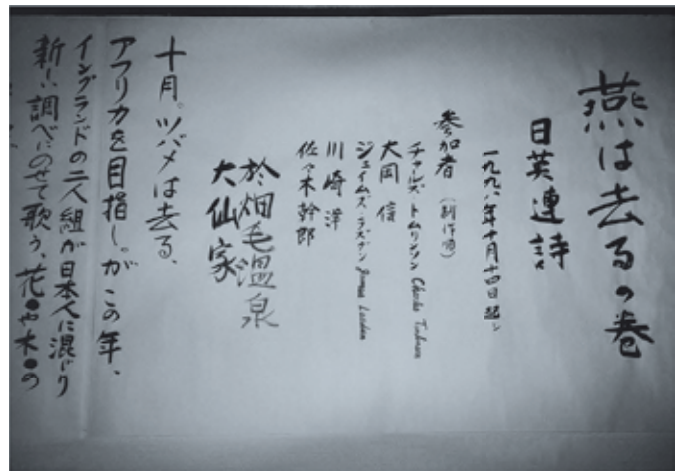 燕は去るの巻
日英連詩
一九九八年十月十四日起し
参加者(制作順)
チャールズ・トムリンソン Charles Tomlinson
大岡 信
ジェイムズ・ラズダン James Lasdun
川崎 洋
佐々木幹郎
於畑毛温泉
大仙家
十月。ツバメは去る、
アフリカを目指し。がこの年、
イングランドの二人組が日本人に混じり
新しい調べにのせて歌う、花や木の